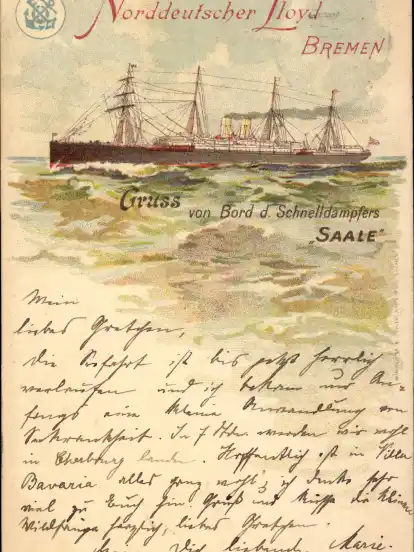 Norddeutscher Lloyd
BREMEN
Gruss
von Bord d. Schnelldampfers
„SAALE“
Mein
liebes Gretchen,
die Seefahrt ist bis jetzt herrlich
verlaufen und ich bekam nur An-
fangs eine kleine Anwandlung von
Seekrankheit. In 7 Stdn. werden wir wohl
in Cherbourg landen. Hoffentlich ist in Villa
Bavaria alles ganz wohl; ich denke sehr
viel zu Euch hin. Gruß und küsse die kleinen
Wildfänge herzlich, liebes Gretchen.
Dich liebende Marie.